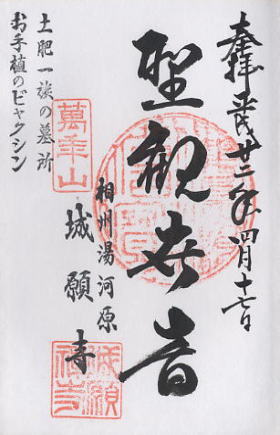 奉拝 平成廿二年四月十七日
聖観世音
相州湯河原
城願寺
萬年山
土肥一族の墓所
お手植のビャクシン
城願禅寺